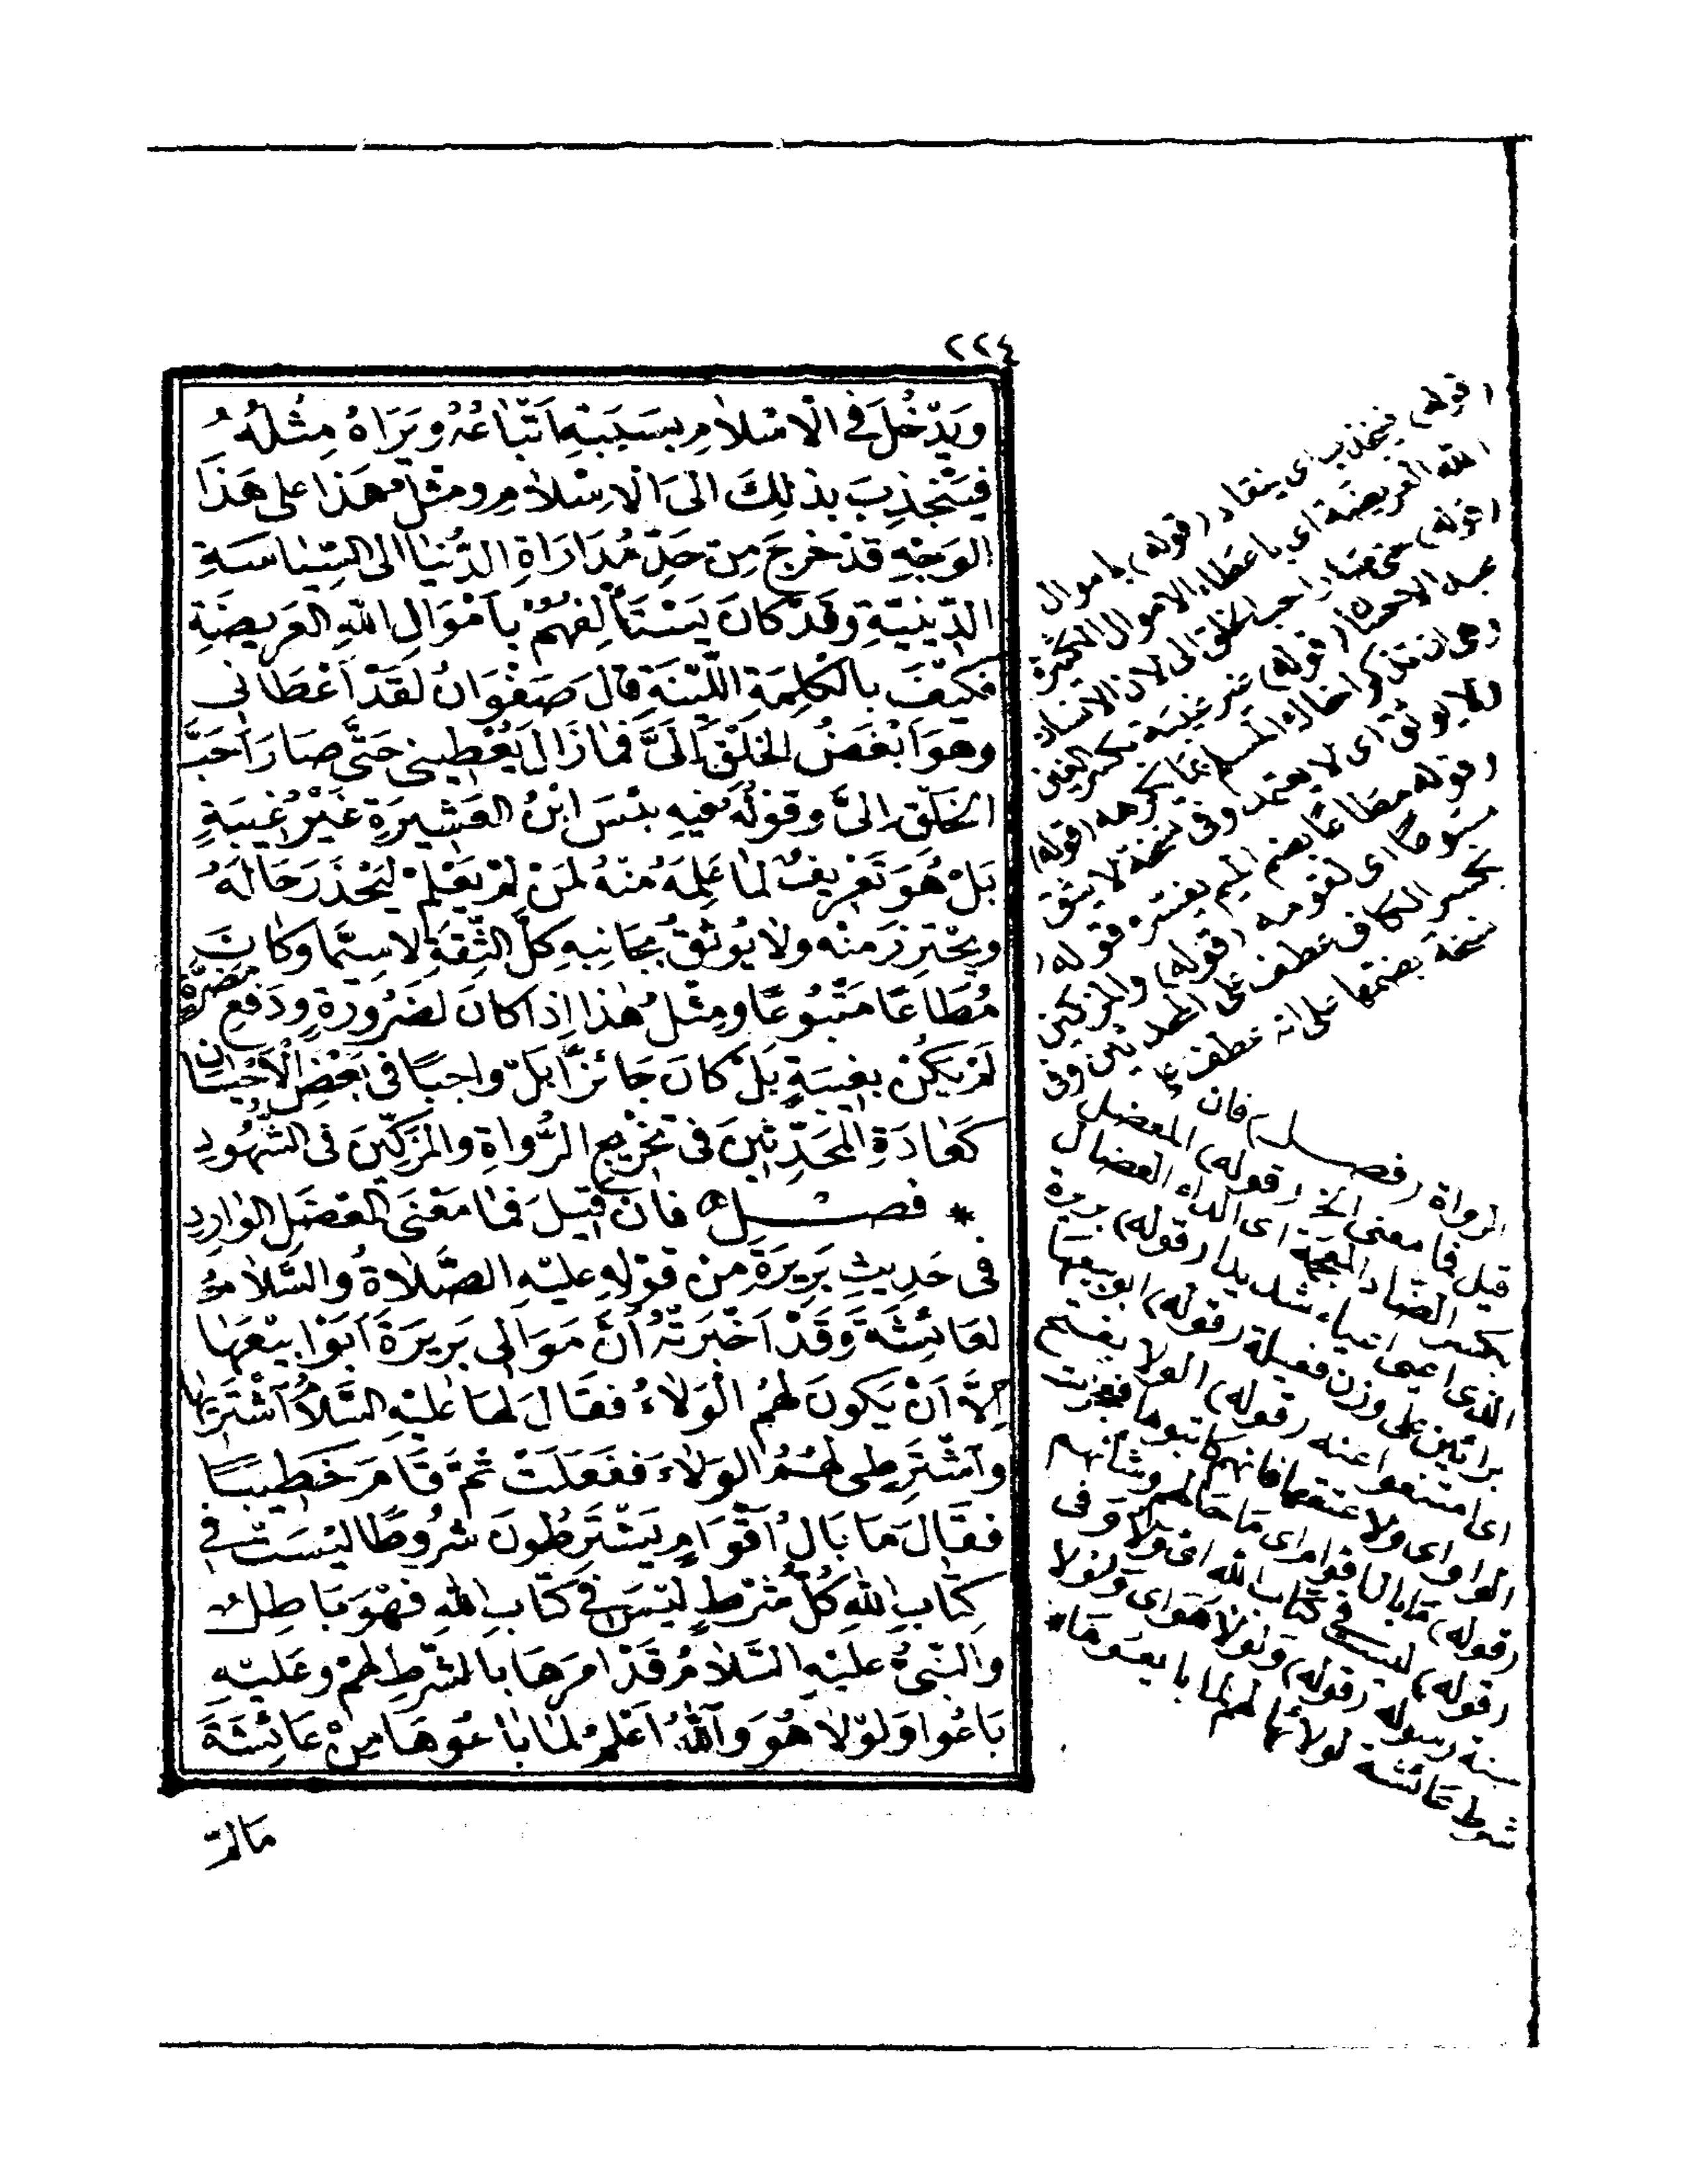 ٢٢٤
وَيَدْخُلَ فِي الْاِسْلَامِ بِسَبَبِهِ اَتْبَاعُهُ وَيَرَاهُ مِثْلُهُ
فَيَنْجَذِبَ بِذٰلِكَ اِلَى الْاِسْلَامِ وَمِثْلُ هَذَا عَلَى هَذَا
الوَجْهِ قَدْ خَرَجَ مِنْ حَدِّ مُدَارَاةِ الدُّنْيَا اِلَى السِّيَاسَةِ
الدِّينِيَّةِ وَقَدْ كَانَ يَسْتَأْلِفُهُمْ بِاَمْوَالِ اللهِ العَرِيضَةِ
فَكَيْفَ بِالْكَلِمَةِ اللَّيِّنَةِ قَالَ صَفْوَانُ لَقَدْ اَعْطَانِى
وَهُوَ اَبْغَضُ الخَلْقِ اِلَىَّ فَمَا زَالَ يُعْطِينِى حَتَّى صَارَ اَحَبَّ
الخَلْقِ اِلَىَّ وَقَوْلُهُ فِيهِ بِئْسَ ابْنُ العَشِيرَةِ غَيْرُ غِيبَةٍ
بَلْ هُوَ تَعْرِيفُ لِمَا عَلِمَهُ مِنْهُ لِمَنْ لَمْ يَعْلَمْ لِيَحْذَرَ حَالَهُ
وَيَحْتَرِزَ مِنْهُ وَلَا يُوثَقُ بِجَانِبِهِ كُلَّ الثِّقَةِ لَاسِيَّمَا وَكَانَ
مُطَاعًا مَتْبُوعًا وَمِثْلُ هٰذَا اِذَا كَانَ لِضَرُورَةٍ وَدَفْعِ مَضَرَّةٍ
لَمْ يَكُنْ بِغِيبَةٍ بَلْ كَانَ جَائِزًا بَلْ وَاجِبًا فِى بَعْضِ الْاَحْيَانِ
كَعَادَةِ المُحَدِّثِينَ فِى تَخْرِيجِ الرُّوَاةِ وَالمُزَكِّينَ فِى الشُّهُودِ
* فصـــل فَاِنْ قِيلَ فَمَا مَعْنَى المُعْضَلِ الوَارِدِ
فِى حَدِيثِ بَرِيرَةَ مِنْ قَوْلِهِ عَلَيْهِ الصَّلَاةُ وَالسَّلَامُ
لِعَائِشَةَ وَقَدْ اَخْبَرَتْهُ اَنَّ مَوَالِى بَرِيرَةَ اَبَوْا بَيْعَهَا
اِلَّا اَنْ يَكُونَ لَهُمُ الْوَلَاءُ فَقَالَ لَهَا عَلَيْهِ السَّلَامُ اشْتَرِيهَا
وَاشْتَرِطِى لَهُمُ الوَلَاءَ فَفَعَلَتْ ثُمَّ قَامَ خَطِيبًا
فَقَالَ مَا بَالُ اَقْوَامٍ يَشْتَرِطُونَ شُرُوطًا لَيْسَتْ فِى
كِتَابِ اللهِ كُلُّ شَرْطٍ لَيْسَ فِى كِتَابِ اللهِ فَهُوَ بَاطِلٌ
وَالنَّبِىُّ عَلَيْهِ السَّلَامُ قَدْ اَمَرَهَا بِالشَّرْطِ لَهُمْ وَعَلَيْهِ
بَاعُوا وَلَوْلَا هُوَ وَاللهُ اَعْلَمُ لَمَا بَاعُوهَا مِنْ عَائِشَةَ
مَالَمْ
(قوله) فينجذب اى ينقاد (قوله) باموال
الله العريضة اى باعطاء الاموال الكثيرة
(قوله) احب الخلق الى لان الانسان
عبد الاحسان (قوله) غير غيبة بكسر الغين
وهى ان تذكر اخاك المسلم بما يكرهه (قوله)
ولا يوثق اى لا يعتمد وفى نسخة لا يثق
(قوله) مطاعا بضم الميم يفسره قوله (
متبوعا) اى لقومه (قوله) والمزكين
بكسر الكاف عطف على المحدثين وفى
نسخة بفتحها على انه عطف على
الرواة (فصـــل) فان
قيل فما معنى الخ (قوله) المعضل
بكسر الضاد المعجمة اى الداء العضال
الذى اعيى اعياء شديدا (قوله) بريرة
برائين على وزن فعيلة (قوله) ابوا بيعها
اى امتنعوا عنه (قوله) الولا بفتح
الواو اى ولاء عتقها فانهم كاتبوها فعجزت
(قوله) ما بال اقوام اى ما حالهم وشانهم
(قوله) ليست فى كتاب الله اى ولا فى
سنة رسوله (قوله) ولولا هو اى ولولا
شرط عائشة لولائها لهم لما باعوها *